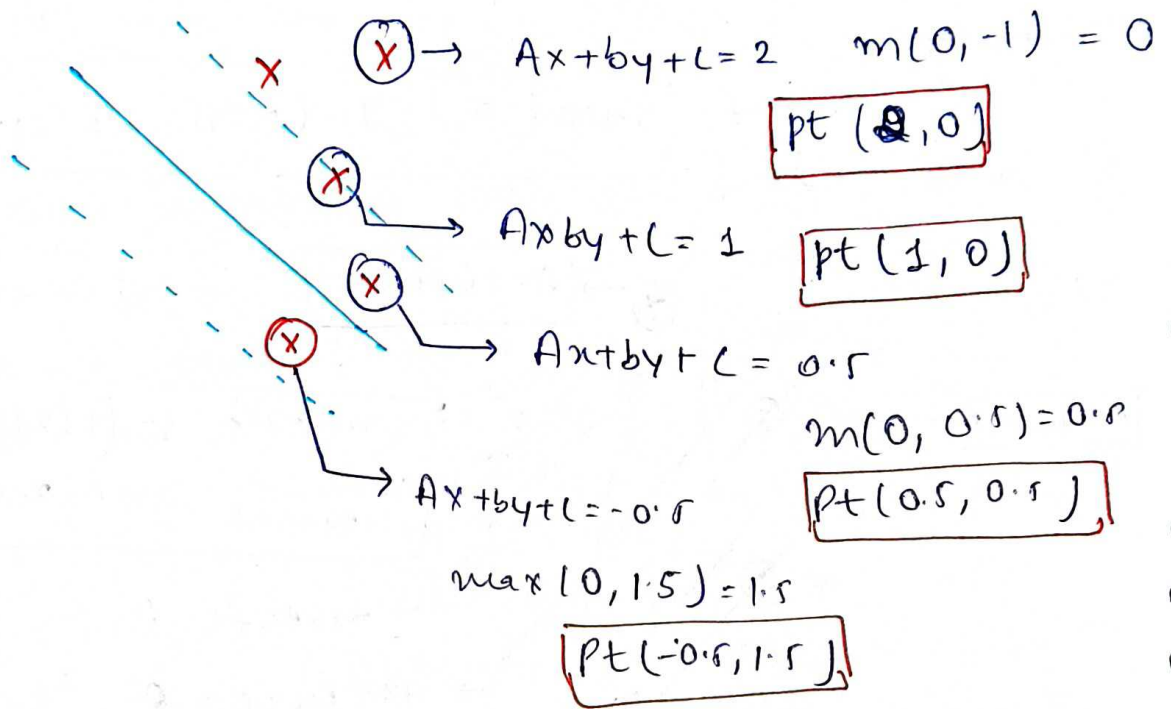 X → Ax+by+c=2 m(0,-1) = 0
X
pt (2,0)
X → Axby+c= 1 pt (1,0)
X → Ax+by+c = 0.5
m(0, 0.5)=0.5
X → Ax+by+c=-0.5 Pt(0.5, 0.5)
max(0,1.5)=1.5
Pt(-0.5,1.5)